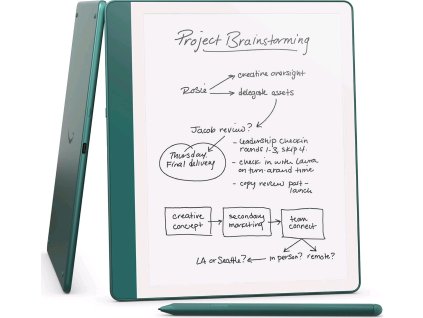 Project Brainstorming
creative oversight
Rosie
delegate assets
Jacob review?
- leadership check in
rounds 1-3, skip 4.
Thursday,
Final delivery
- check in with Laura
on turn-around time
- copy review post-
launch
creative concept
secondary marketing
team connect
LA or Seattle?
in person?
remote?